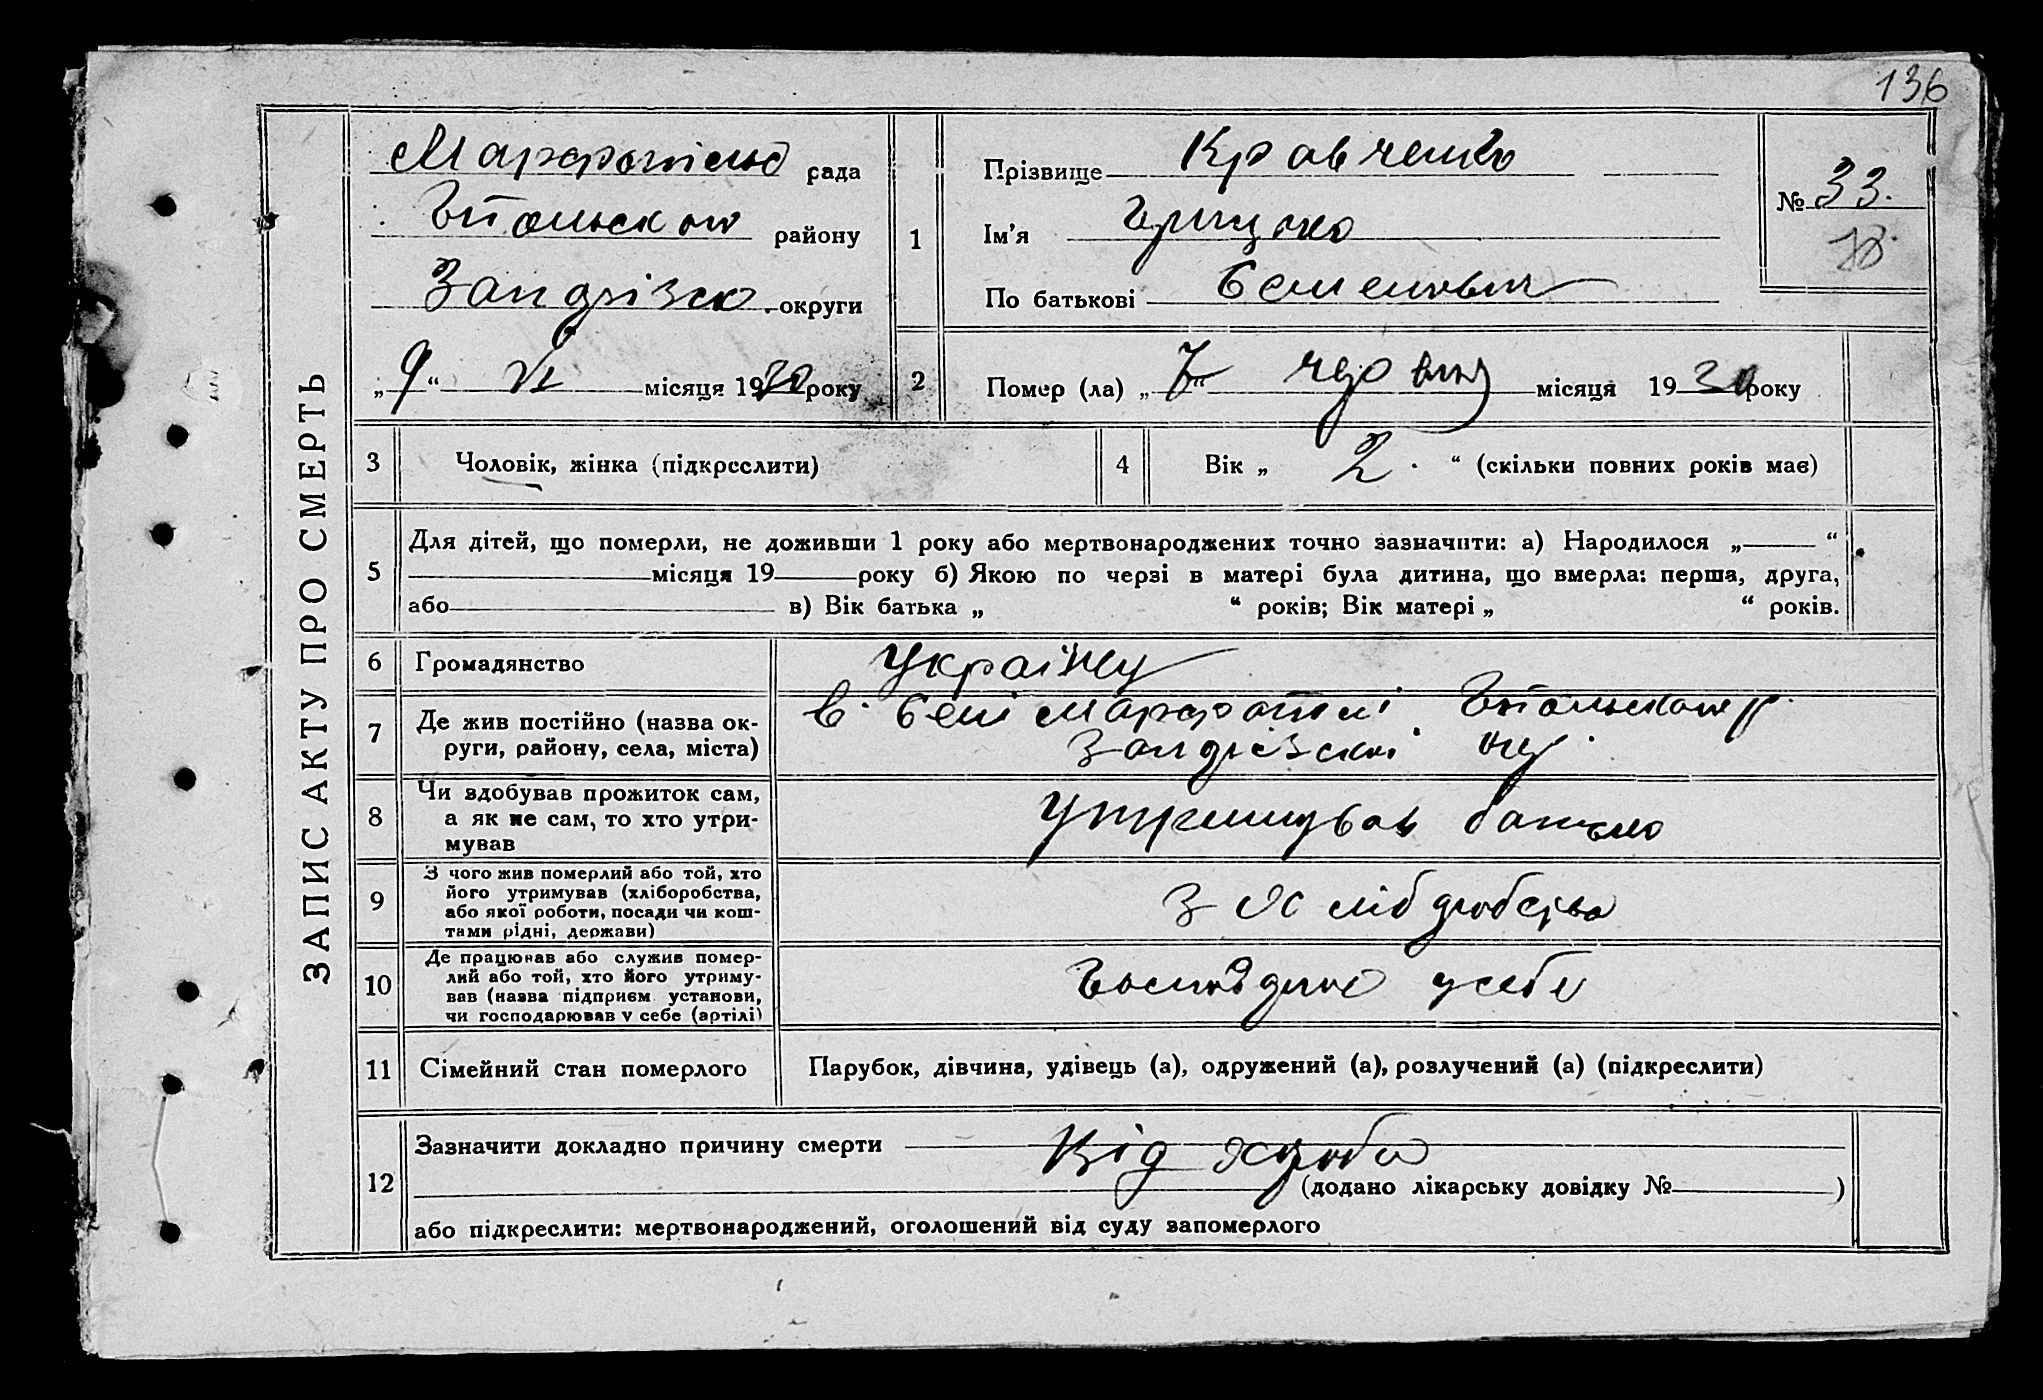 136
ЗАПИС АКТУ ПРО СМЕРТЬ
Марфопільсо рада
району
Запорізко округи
„ 9 “ VI місяця 1930 року
1
Прізвище Кравченко
Ім'я Грицько
По батькові Семенович
№ 33.
18
2
Помер (ла) „ 7 “ червня місяця 1930 року
3
Чоловік, жінка (підкреслити)
4
Вік „ 2 “ (скільки повних років має)
5
Для дітей, що померли, не доживши 1 року або мертвонароджених точно зазначити: а) Народилося „ “
місяця 19 року б) Якою по черзі в матері була дитина, що вмерла: перша, друга,
або в) Вік батька „ “ років; Вік матері „ “ років.
6
Громадянство
7
Де жив постійно (назва ок-
руги, району, села, міста)
в селі Марфополі
Запорізскоі окр.
8
Чи здобував прожиток сам,
а як не сам, то хто утри-
мував
утримував батько
9
З чого жив померлий або той, хто
його утримував (хліборобства,
або якої роботи, посади чи кош-
тами рідні, держави)
З хліборобства
10
Де працював або служив помер-
лий або той, хто його утриму-
вав (назва підприєм. установи,
чи господарював у себе (артілі)
у себе
11
Сімейний стан померлого
Парубок, дівчина, удівець (а), одружений (а), розлучений (а) (підкреслити)
12
Зазначити докладно причину смерти Від хороби
(додано лікарську довідку № )
або підкреслити: мертвонароджений, оголошений від суду запомерлого